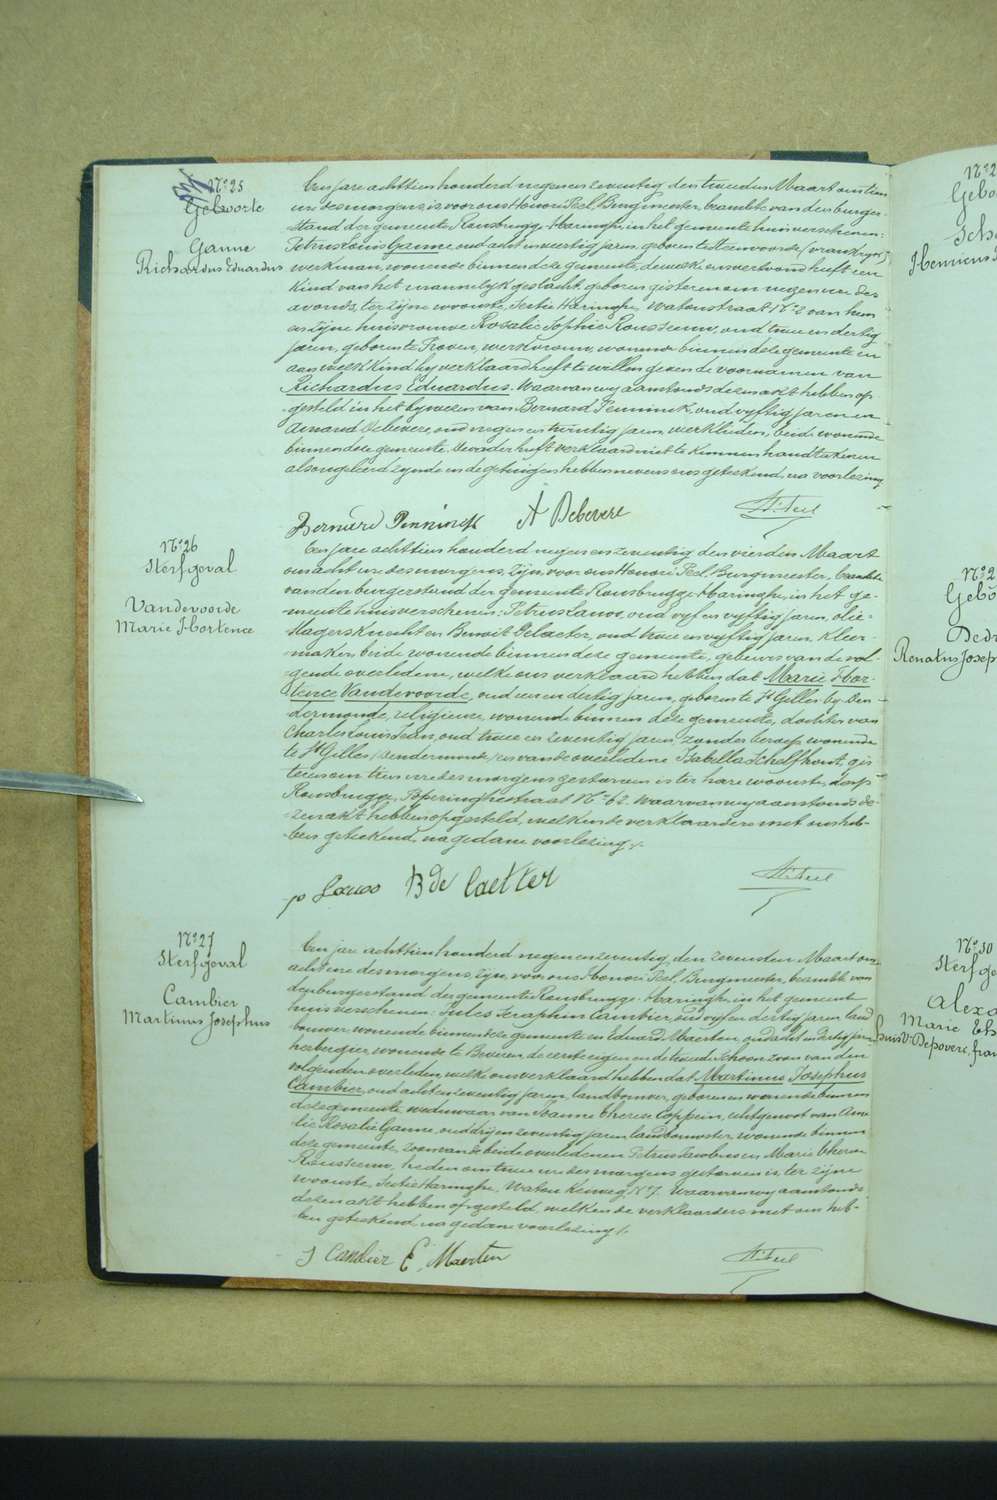 N° 25
Geboorte
Ganne
Richardus Eduardus
Een jare achttien honderd negen en zeventig den tweeden Maart om tien
ure des morgens, is voor ons Honoré Peel, Burgmeester, beambte van den burger-
stand der gemeente Rousbrugge-Haringhe, in het gemeente huis verschenen:
Petrus Louis Ganne, oud acht en veertig jaren, geboren te Steenvoorde (vrankryk)
werkman, wonende binnen deze gemeente, dewelke ons vertoond heeft een
kind van het mannelyk geslacht, geboren gisteren om negen ure des
avonds, ter zyne woonste, Sectie Haringhe, Watoustraat N° 2 van hem
en zyne huisvrouwe Rosalie Sophie Rousseeuw, oud twee en dertig
jaren, geboren te Proven, werkvrouw, wonende binnen deze gemeente en
aan welk kind hy verklaard heeft te willen geven de voornamen van
Richardus Eduardus. Waarvan wy aanstonds dezen akt hebben op-
gesteld in het bywezen van Bernard Penninck, oud vyftig jaren en
Amand Debevere, oud negen en twintig jaren, werklieden, beide wonende
binnen deze gemeente. De vader heeft verklaard niet te kunnen handtekenen
als ongeleerd zynde en de getuigen hebben nevens ons geteekend, na voorlezing
Bernard Penninck A Debevere H. Peel
N° 26
Sterfgeval
Vandevoorde
Marie Hortence
Een jare achttien honderd negen en zeventig den vierden Maart
om acht ure des morgens, zyn voor ons Honoré Peel, Burgmeester, beambte
van den burgerstand der gemeente Rousbrugge-Haringhe, in het ge-
meente huis verschenen: Petrus Lauwo, oud vyf en vyftig jaren, olie-
slagers knecht en Benoit Decaeter, oud twee en vyftig jaren, kleer-
maker, beide wonende binnen deze gemeente, gebuers van de vol-
gende overledene, welke ons verklaard hebben dat Marie Hor-
tence Vandevoorde, oud een en dertig jaren, geboren te St Gilles by Den-
dermonde, religieuse, wonende binnen deze gemeente, dochter van
Charles Louis Jean, oud twee en zeventig jaren, zonder beroep, wonende
te St Gilles (Dendermonde) en van de overledene Isabella Schelfhout, gis-
teren om tien ure des morgens gestorven is ter hare woonste, dorp
Rousbrugge, Poperinghestraat N° 62. Waarvan wy aanstonds de-
zen akt hebben opgesteld, welken de verklaarders met ons heb-
ben geteekend, na gedane voorlezing.
p Lauwo B de Caetter H. Peel
N° 27
Sterfgeval
Cambier
Martinus Josephus
Een jare achttien honderd negen en zeventig, den zevensten Maart om
acht ure des morgens, zyn, voor ons Honoré Peel, Burgmeester, beambte van
den burgerstand der gemeente Rousbrugge-Haringhe, in het gemeente
huis verschenen: Jules Seraphin Cambier, oud vyf en dertig jaren, land
bouwer, wonende binnen deze gemeente en Eduard Maerten, oud acht en dertig jaren
herbergier, wonende te Beveren, de eerste eigen en de tweede schoonzoon van den
volgenden overleden, welke ons verklaard hebben dat Martinus Josephus
Cambier, oud acht en zeventig jaren, landbouwer, geboren en wonende binnen
deze gemeente, weduwaar van Joanne Therese Coppein, echtgenoot van Ame-
lie Rosalie Ganne, oud dry en zeventig jaren, landbouwster, wonende binnen
deze gemeente, zoon van de beide overledenen Petrus Jacobus en Marie Therese
Rousseeuw, heden om twee ure des morgens gestorven is, ter zyne
woonste, Sectie Haringhe, Watou Keiweg N° 7. Waarvan wy aanstonds
dezen akt hebben opgesteld, welken de verklaarders met ons heb-
ben geteekend, na gedane voorlezing.
J Cambier E. Maerten H. Peel
N° 2
Gebo
Sch
Henricus
N° 2
Gebo
Ded
Renatus Josep
N° 30
Sterfge
Alexa
Marie Th
huisv Depovere, fran